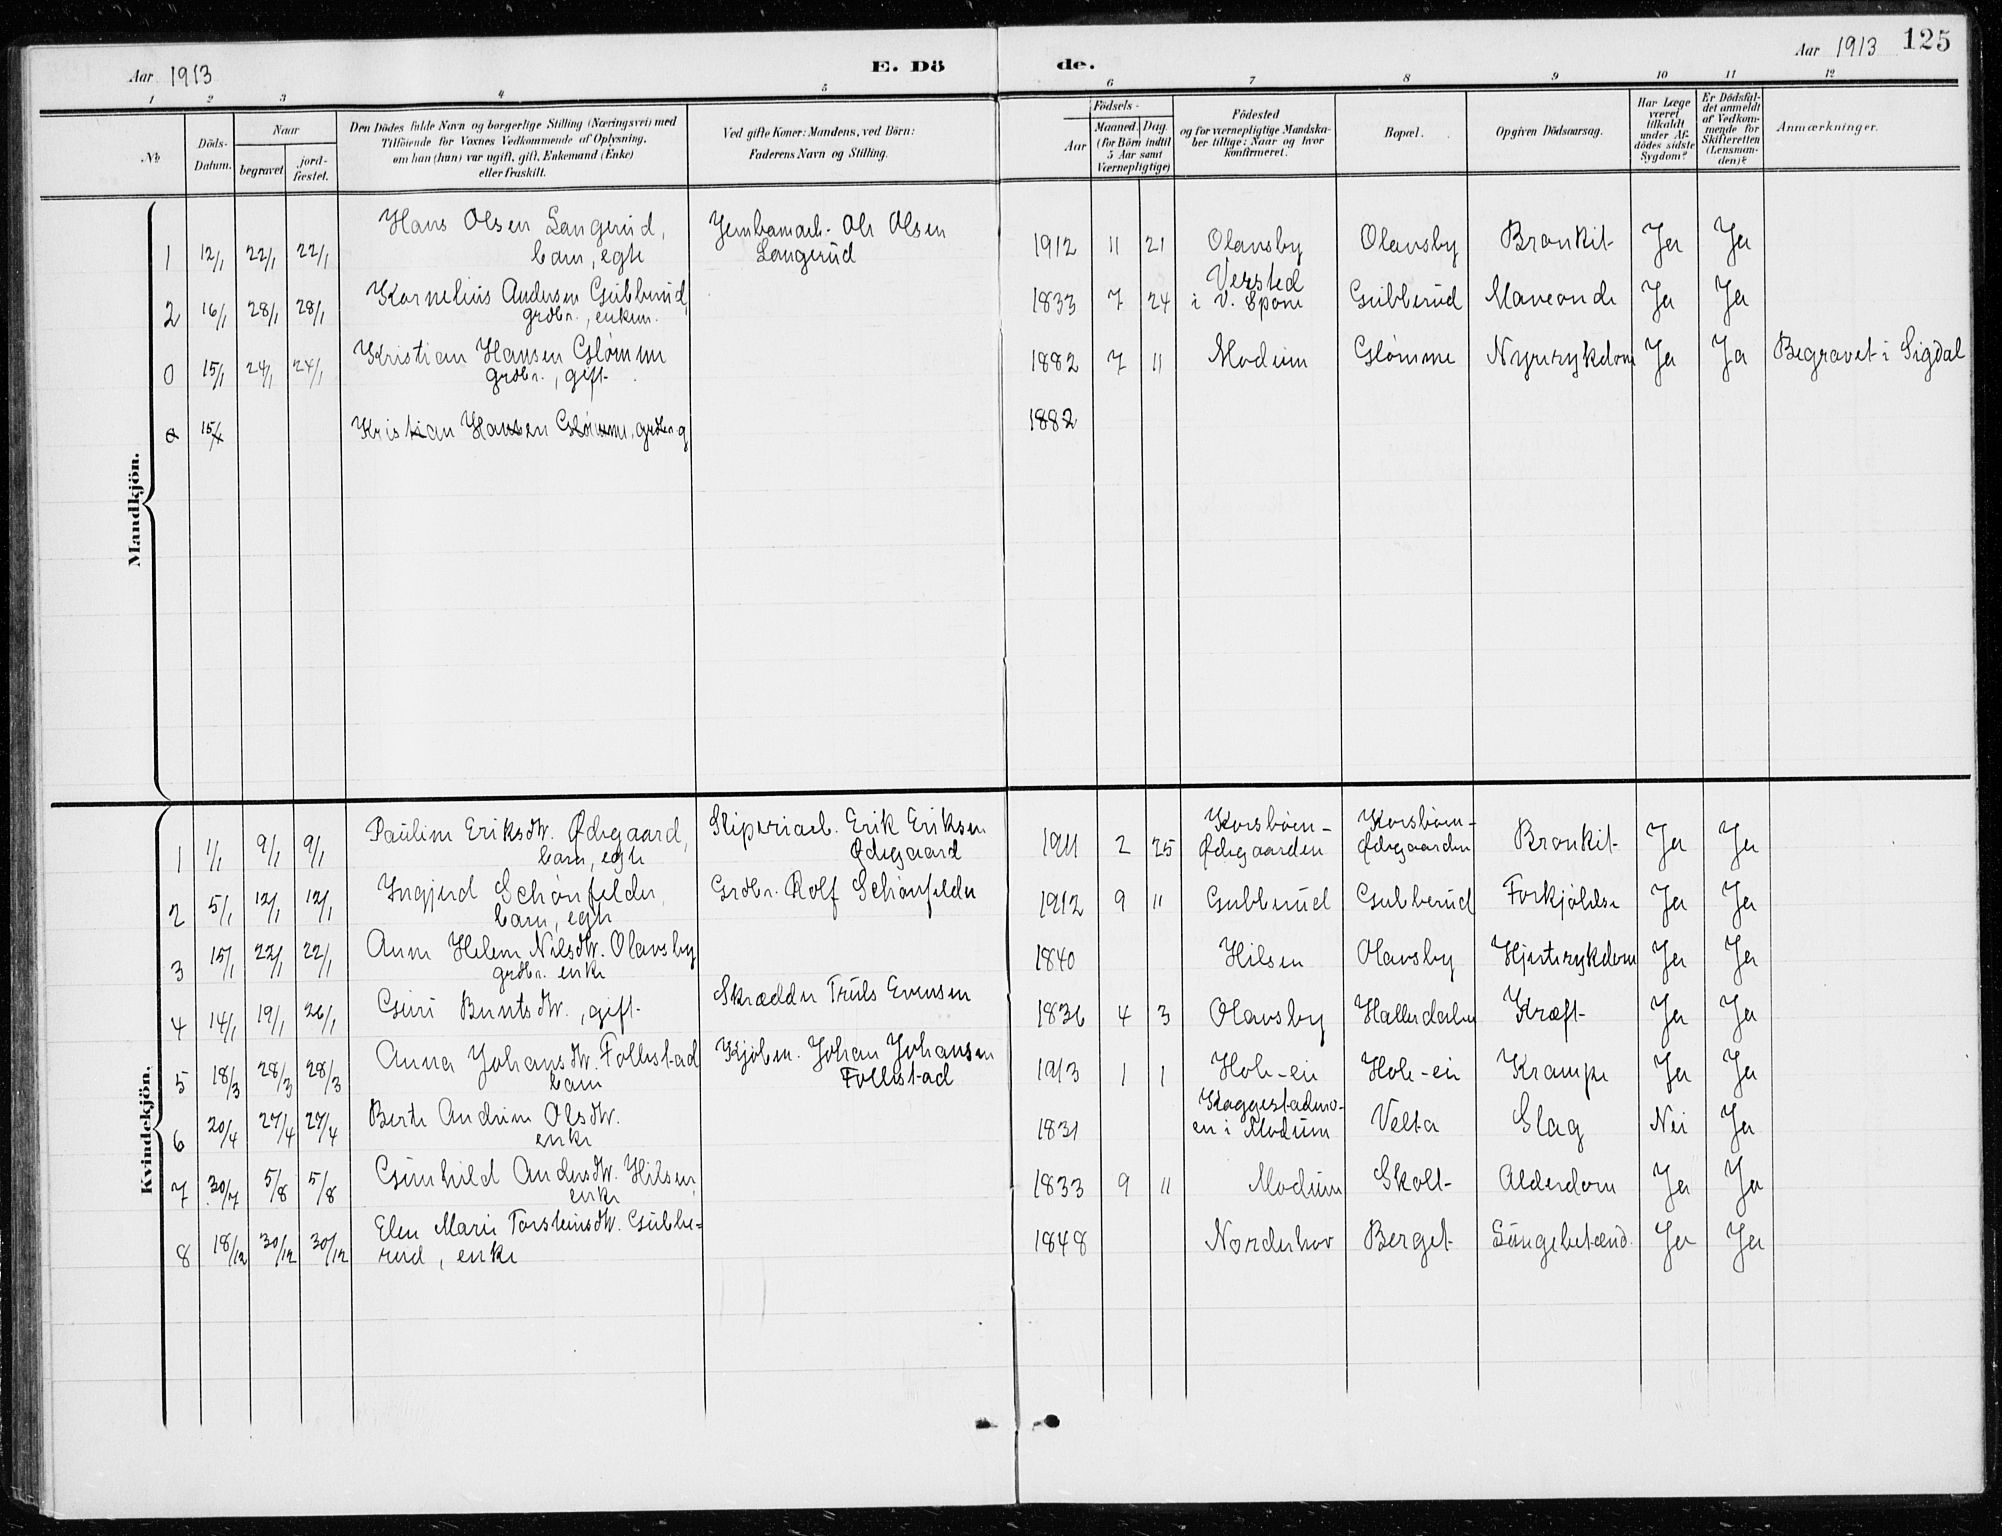 Aar 1913
E. Dö
de.
Aar 1913
125
1 2 3 4 5 6 7 8 9 10 11 12
No
Döds-Datum.
Naar
begravet
jordfæstet.
Den Dödes fulde Navn og borgerlige Stilling (Næringsvei) med
Tilföiende for Voxnes Vedkommende af Oplysning,
om hun (han) var ugift, gift, Enkemand (Enke)
eller fraskilt.
Ved gifte Koner: Mandens, ved Börn:
Faderens Navn og Stilling.
Födsels-
Aar
Maaned. Dag.
(for Börn indtil
5 Aar samt
Værnepligtige)
Födested
og for værnepligtige Mandskaber tillige: Naar og hvor
konfirmeret.
Bopæl.
Opgiven Dödsaarsag.
Har Læge
været
tilkaldt
under Afdödes sidste
Sygdom?
Er Dödsfaldet anmeldt
af Vedkommende for
Skifteretten
(Lensmanden)?
Anmærkninger.
Mandkjön.
1 12/1 22/1 22/1 Hans Olsen Langerud, barn, egte Jernbanearb. Ole Olsen Langerud 1912 11 21 Olavsby Olavsby Bronkit Ja Ja
2 16/1 28/1 28/1 Kornelius Andersen Gubberud, grdbr., enkem. 1833 7 24 Versted i V. Spone Gubberud Maveonde Ja Ja
0 15/1 24/1 24/1 Kristian Hansen Glømme grdbr., gift 1882 7 11 Modum Glømme Nyresykdom Ja Ja Begravet i Sigdal
0 15/1 Kristian Hansen Glømme, grdbr. g 1882
Kvindekjön.
1 1/1 9/1 9/1 Pauline Eriksdtr. Ødegaard, barn, egte Sliperiarb. Erik Eriksen Ødegaard 1911 2 25 Korsbøen-Ødegaarden Korsbøen-Ødegaarden Bronkit Ja Ja
2 5/1 12/1 12/1 Ingjerd Schønfelder, barn, egte Grdbr. Rolf Schønfelder 1912 9 11 Gubberud Gubberud Forkjølelse Ja Ja
3 15/1 22/1 22/1 Anne Helene Nilsdtr. Olavsby grdbr. enke 1840 Hilsen Olavsby Hjertesykdom Ja Ja
4 14/1 19/1 26/1 Guri Berntsdtr., gift Skrædder Truls Evensen 1836 4 3 Olavsby Hallerdalen Kræft Ja Ja
5 18/3 28/3 28/3 Anna Johansdtr. Follestad barn Kjøbm. Johan Johansen Follestad 1913 1 1 Hole-eie Hole-eie Krampe Ja Ja
6 20/4 27/4 27/4 Berte Andrine Olsdtr. enke 1831 Kaggestadmoen i Modum Velta Slag Nei Ja
7 30/7 5/8 5/8 Gunhild Andersdtr. Hilsen, enke 1833 9 11 Modum Skolt Alderdom Ja Ja
8 18/12 30/12 30/12 Elen Marie Torsteinsdtr. Gubberud, enke 1848 Norderhov Berget Lungebetænd. Ja Ja